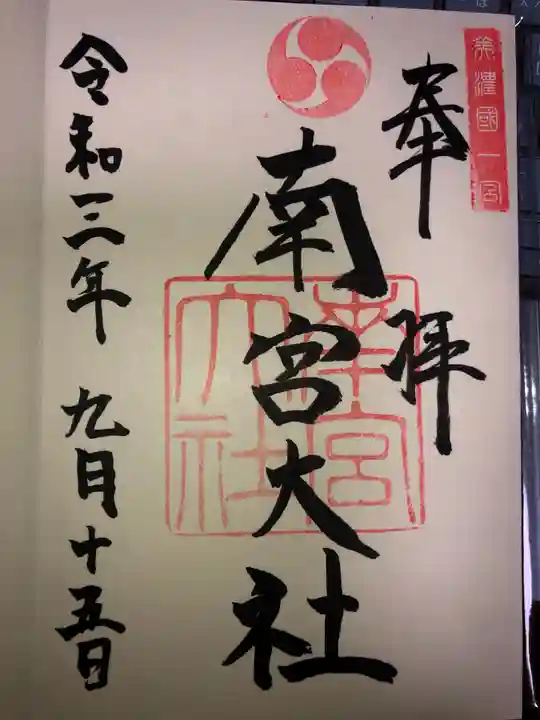 美濃國一宮
奉拝
南宮大社
南宮大社
令和三年 九月十五日